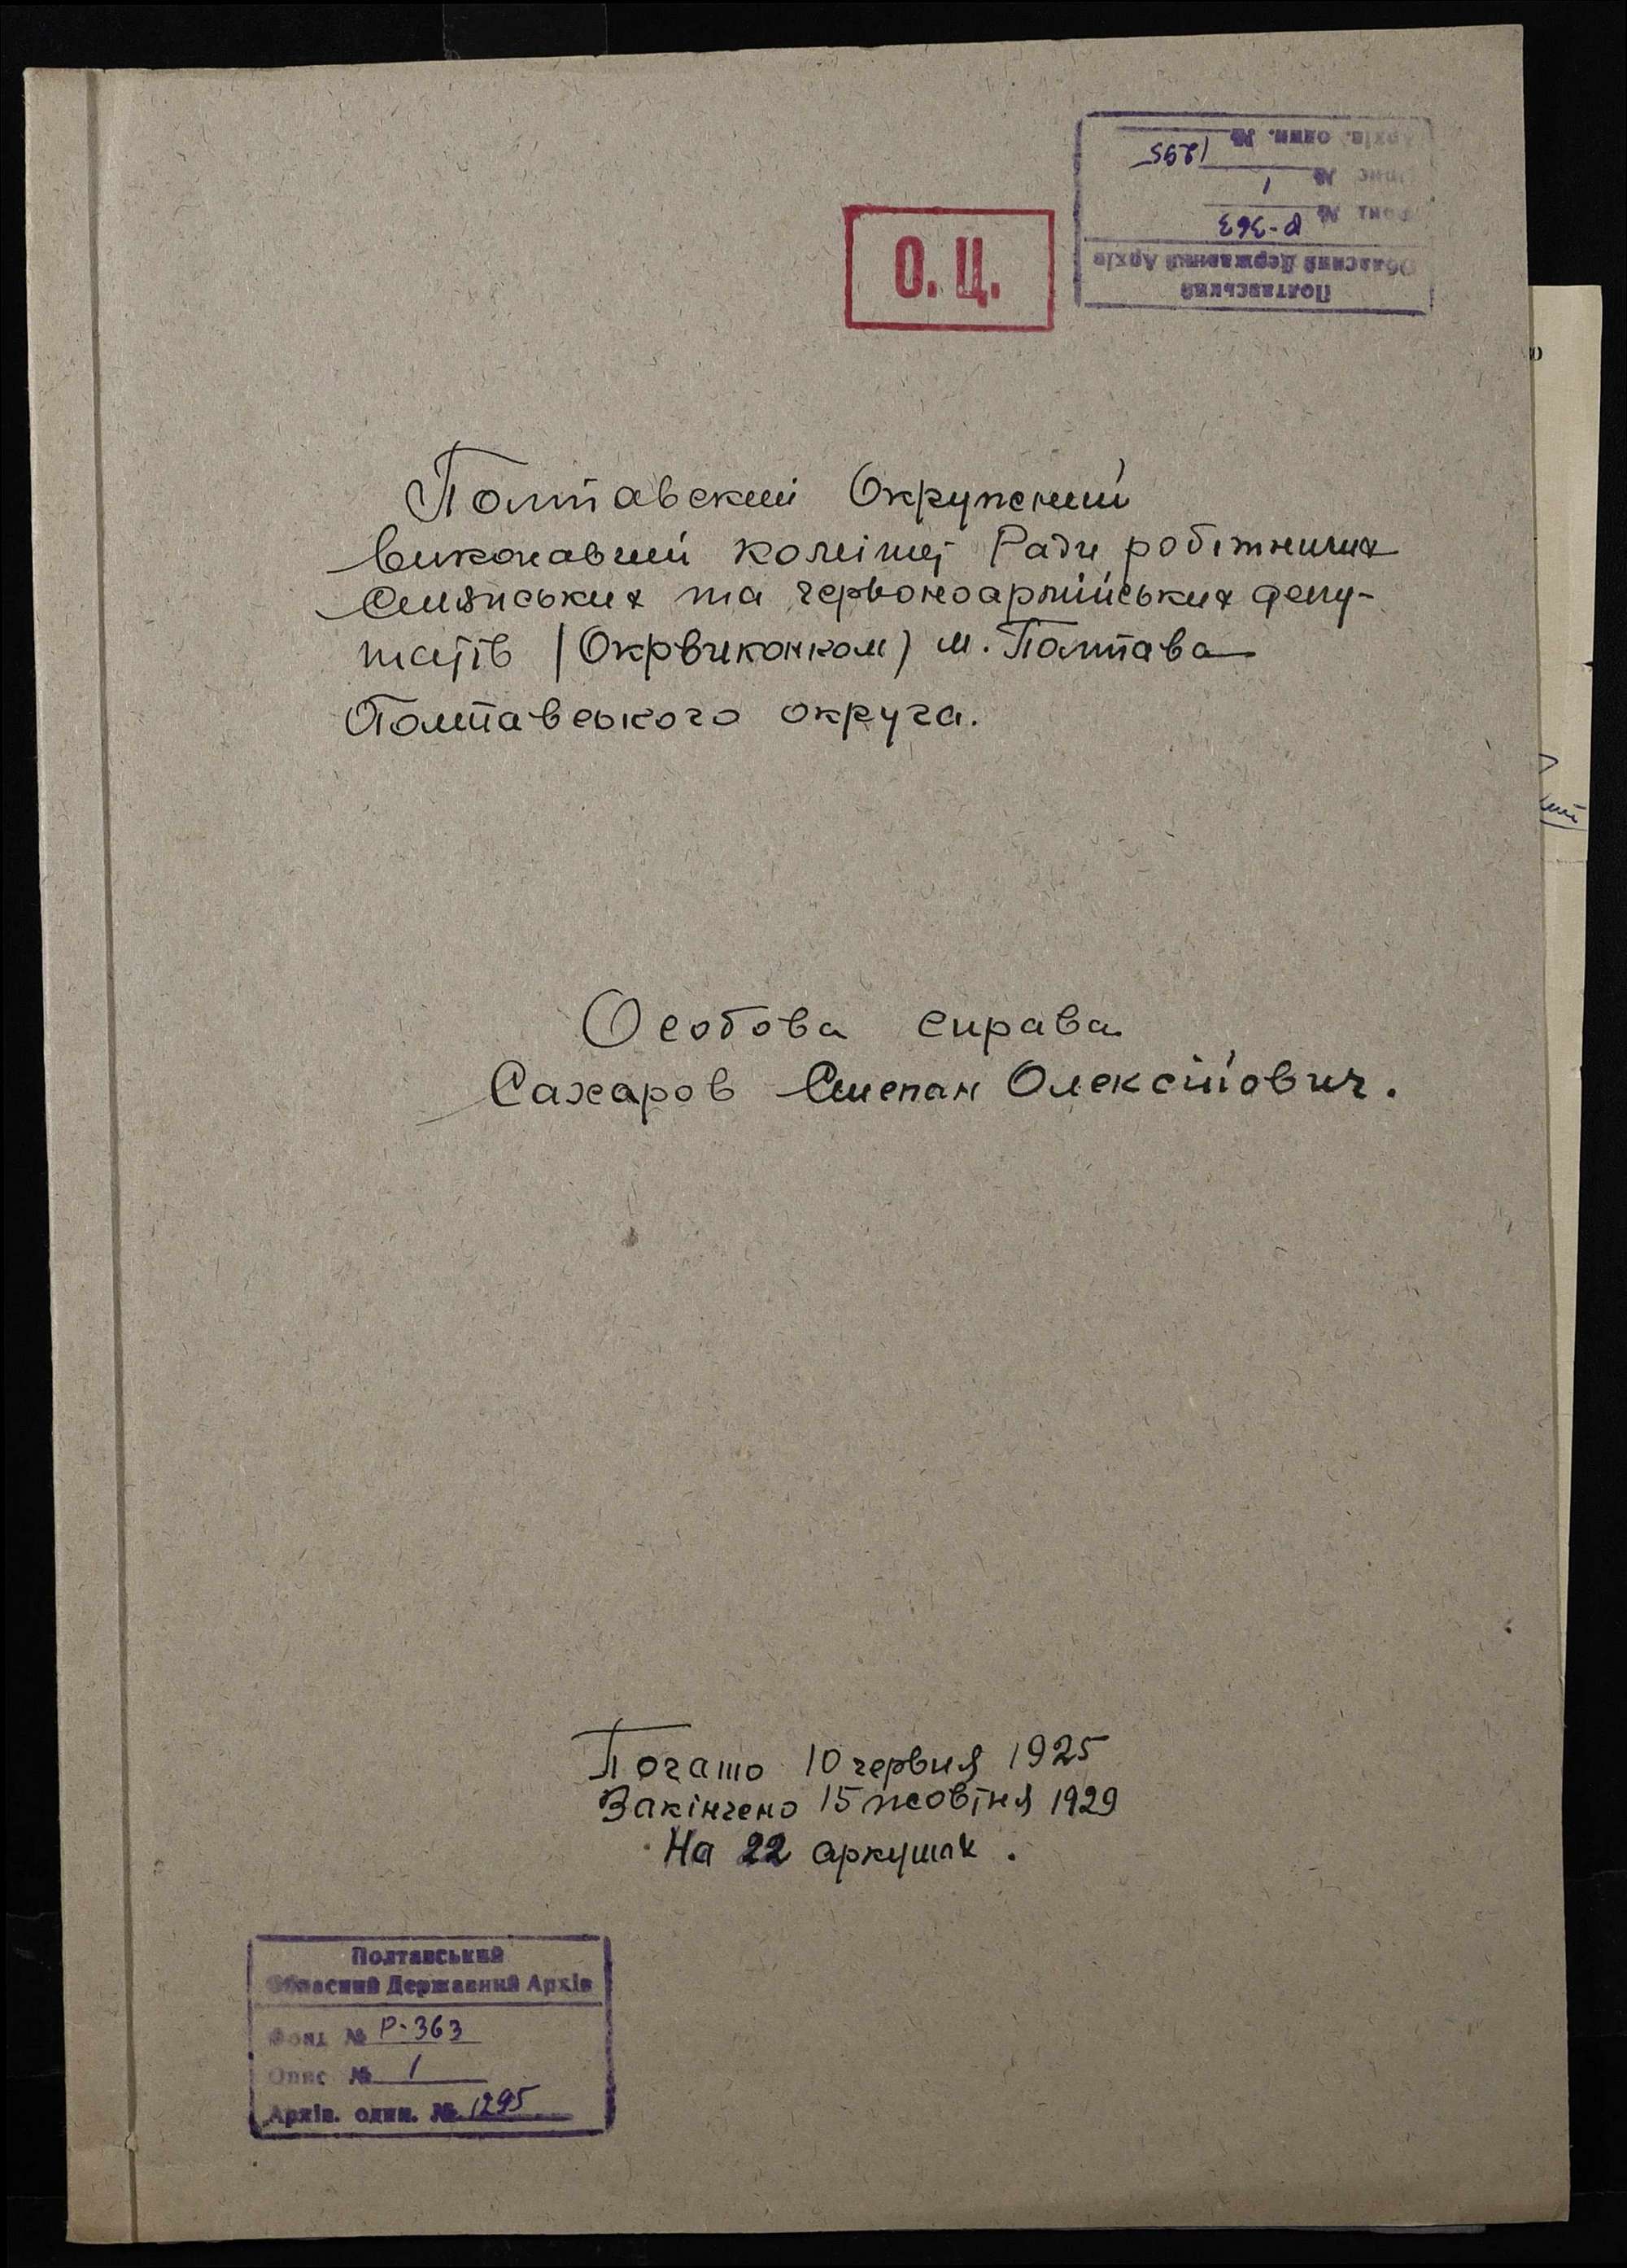 Полтавський
Обласний Державний Архів
Фонд № Р-363
Опис № 1
Архів. один. № 1295
О. Ц.
Полтавский Окружний
виконавчий комітет Ради робітничих
Селянських та червоноармійських депу-
татів (Окрвиконком) м. Полтава
Полтавського округа.
Особова справа
Сахаров Степан Олексійович.
Почато 10 червня 1925
Закінчено 15 жовтня 1929
На 22 аркушах.
Полтавський
Обласний Державний Архів
Фонд № Р-363
Опис № 1
Архів. один. № 1295